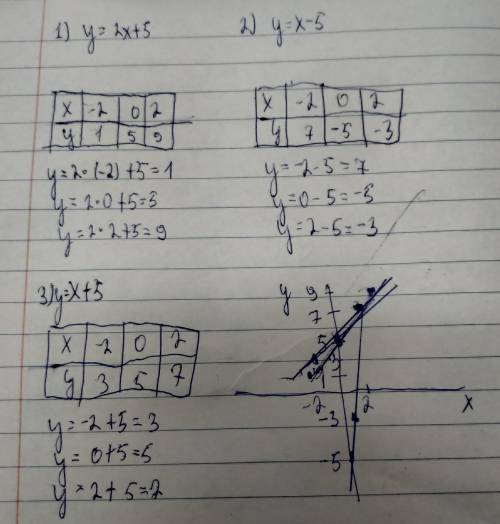 1) y = 2x+5
2) y = x-5
x -2 0 2
y 1 5 9
x -2 0 2
y 7 -5 -3
y = 2·(-2)+5=1
y = 2·0+5=3
y = 2·2+5=9
y = -2-5=7
y = 0-5=-5
y = 2-5=-3
3) y=x+5
x -2 0 2
y 3 5 7
y = -2+5=3
y = 0+5=5
y = 2+5=7
y
9
7
5
3
1
-2 2
x
-3
-5